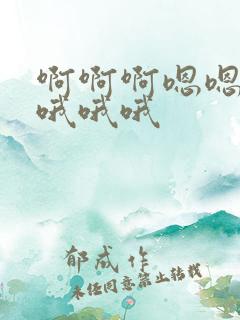 啊啊啊嗯嗯
哦哦哦
郁成作
未经同意禁止转载